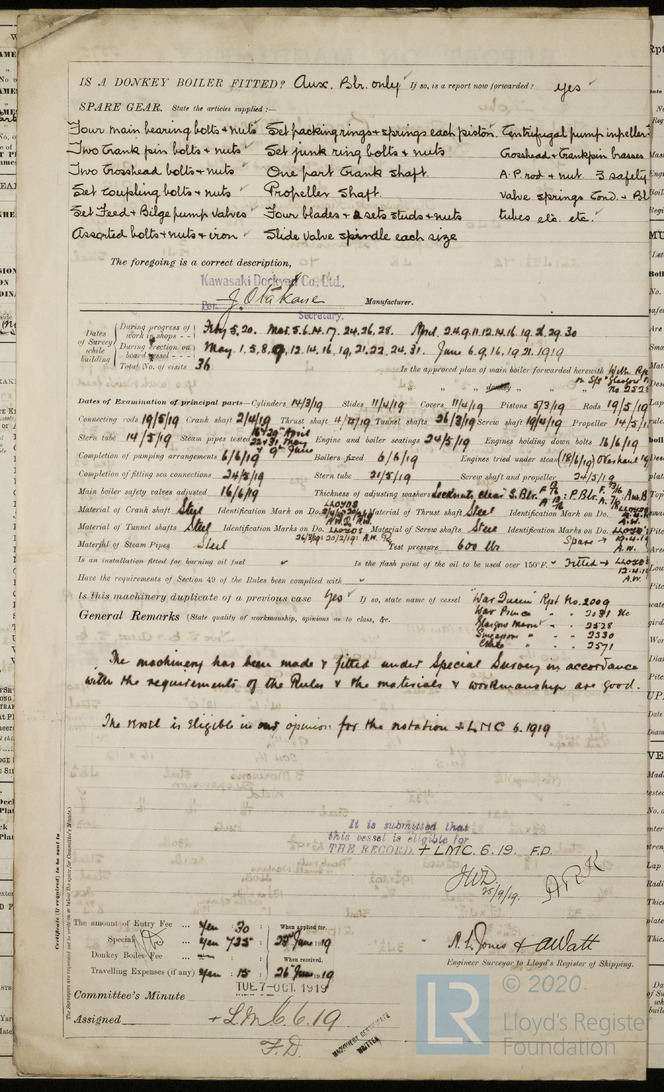 IS A DONKEY BOILER FITTED? Aux. Blr. only If so, is a report now forwarded? yes
SPARE GEAR. State the articles supplied:—
Four main bearing bolts & nuts Set packing rings & springs each piston. Centrifugal pump impeller
Two Crank pin bolts & nuts Set junk ring bolts & nuts Crosshead & Crankpin brasses
Two Crosshead bolts & nuts One part Crank shaft. A.P. rod & nut 3 safety
Set coupling bolts & nuts Propeller shaft valve springs Cond. & Bl
Set Feed & Bilge pump valves Four blades & 2 sets studs & nuts tubes etc. etc.
Assorted bolts & nuts & iron Slide valve spindle each size
The foregoing is a correct description,
Kawasaki Dockyard Co., Ltd.,
Per. Manufacturer.
Secretary.
Dates of Survey while building
During progress of work in shops -- Feby 5, 20. Mar. 5. 6. 14. 17. 24. 26. 28. April 2. 4. 9. 11. 12. 14. 16. 19. 29. 30
During erection on board vessel --- May. 1, 5, 8, 9, 12, 14. 16, 19, 21, 22, 24. 31. June 6. 9, 16, 19, 21. 1919
Total No. of visits 36 Is the approved plan of main boiler forwarded herewith With Rpt
on S/S "Glasgow
" " " donkey " " " No 2528
Dates of Examination of principal parts—Cylinders 14/3/19 Slides 11/4/19 Covers 11/4/19 Pistons 5/3/19 Rods 19/5/19
Connecting rods 19/5/19 Crank shaft 2/4/19 Thrust shaft Tunnel shafts 26/3/19 Screw shaft 19/4/19 Propeller 14/5/19
Stern tube 14/5/19 Steam pipes tested 16 & 30 April 22 & 31 May & 9 June Engine and boiler seatings 24/5/19 Engines holding down bolts 16/6/19
Completion of pumping arrangements 6/6/19 Boilers fixed 6/6/19 Engines tried under steam (18/6/19)
Completion of fitting sea connections 24/5/19 Stern tube 21/5/19 Screw shaft and propeller 24/5/19
Main boiler safety valves adjusted 16/6/19 Thickness of adjusting washers
Material of Crank shaft Steel Identification Mark on Do. LLOYDS Material of Thrust shaft Steel Identification Mark on Do. LLOYDS
Material of Tunnel shafts Steel Identification Marks on Do. LLOYDS Material of Screw shafts Steel Identification Marks on Do. LLOYDS
Material of Steam Pipes Steel Test pressure 600 lbs Spare → A.W.
Is an installation fitted for burning oil fuel Is the flash point of the oil to be used over 150°F. Fitted → LLOYDS
Have the requirements of Section 49 of the Rules been complied with A.W.
Is this machinery duplicate of a previous case Yes If so, state name of vessel "War Queen" Rpt No. 2009
War Prince
General Remarks (State quality of workmanship, opinions as to class, &c. Glasgow Maru " - - 2528
Singapore " - - 2330
" - - 2571
The machinery has been made & fitted under Special Survey in accordance
with the requirements of the Rules & the materials & workmanship are good.
The vessel is eligible in our opinion for the notation + LMC 6. 1919
It is submitted that
this vessel is eligible for
THE RECORD. + LMC. 6. 19. F.D.
25/9/19. A.R.K
Certificate (if required) to be sent to
The Surveyors are requested not to write on or below the space for Committee's Minute.
The amount of Entry Fee ... Yen 30 : When applied for,
Special ... Yen 735 : 25 June 1919
Donkey Boiler Fee ... — : When received,
Travelling Expenses (if any) Yen : 15 : 26 June 1919
R. L. Jones & A Watt
Engineer Surveyor to Lloyd's Register of Shipping.
Committee's Minute TUE. 7-OCT. 1919
Assigned + LMC 6. 19
F.D.
MACHINERY CERTIFICATE
WRITTEN
LR
© 2020
Lloyd's Register
Foundation